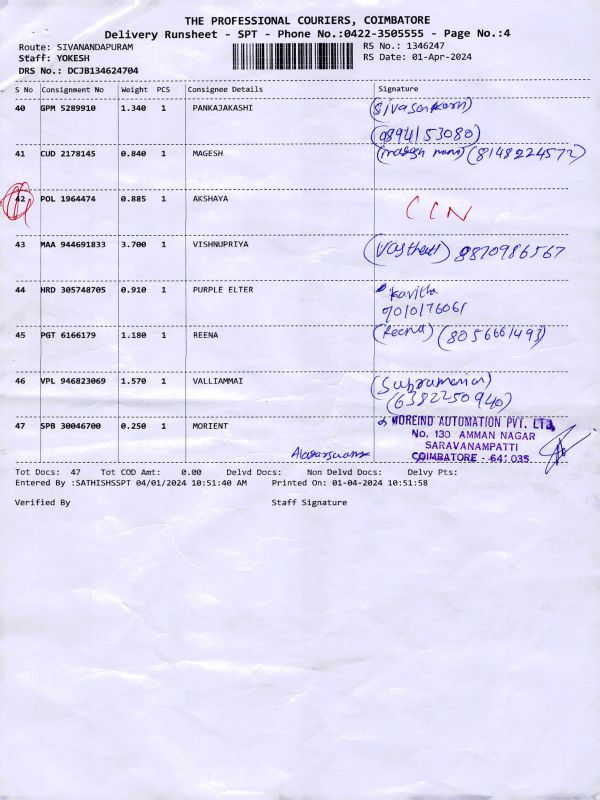 THE PROFESSIONAL COURIERS, COIMBATORE
Delivery Runsheet - SPT - Phone No.:0422-3505555 - Page No.:4
Route: SIVANANDAPURAM RS No.: 1346247
Staff: YOKESH RS Date: 01-Apr-2024
DRS No.: DCJB134624704
S No Consignment No Weight PCS Consignee Details Signature
40 GPM 5289910 1.340 1 PANKAJAKASHI
(9894153080)
41 CUD 2178145 0.840 1 MAGESH (8148224572)
42 POL 1964474 0.885 1 AKSHAYA
43 MAA 944691833 3.700 1 VISHNUPRIYA 8870986567
44 HRD 305748705 0.910 1 PURPLE ELTER Kavitha
7010176061
45 PGT 6166179 1.180 1 REENA (Reena) (8056661493)
46 VPL 946823069 1.570 1 VALLIAMMAI (Subramanian)
(6382250940)
47 SPB 30046700 0.250 1 MORIENT MOREIND AUTOMATION PVT. LTD,
No. 130 AMMAN NAGAR
SARAVANAMPATTI
COIMBATORE - 641 035.
Tot Docs: 47 Tot COD Amt: 0.00 Delvd Docs: Non Delvd Docs: Delvy Pts:
Entered By :SATHISHSSPT 04/01/2024 10:51:40 AM Printed On: 01-04-2024 10:51:58
Verified By Staff Signature